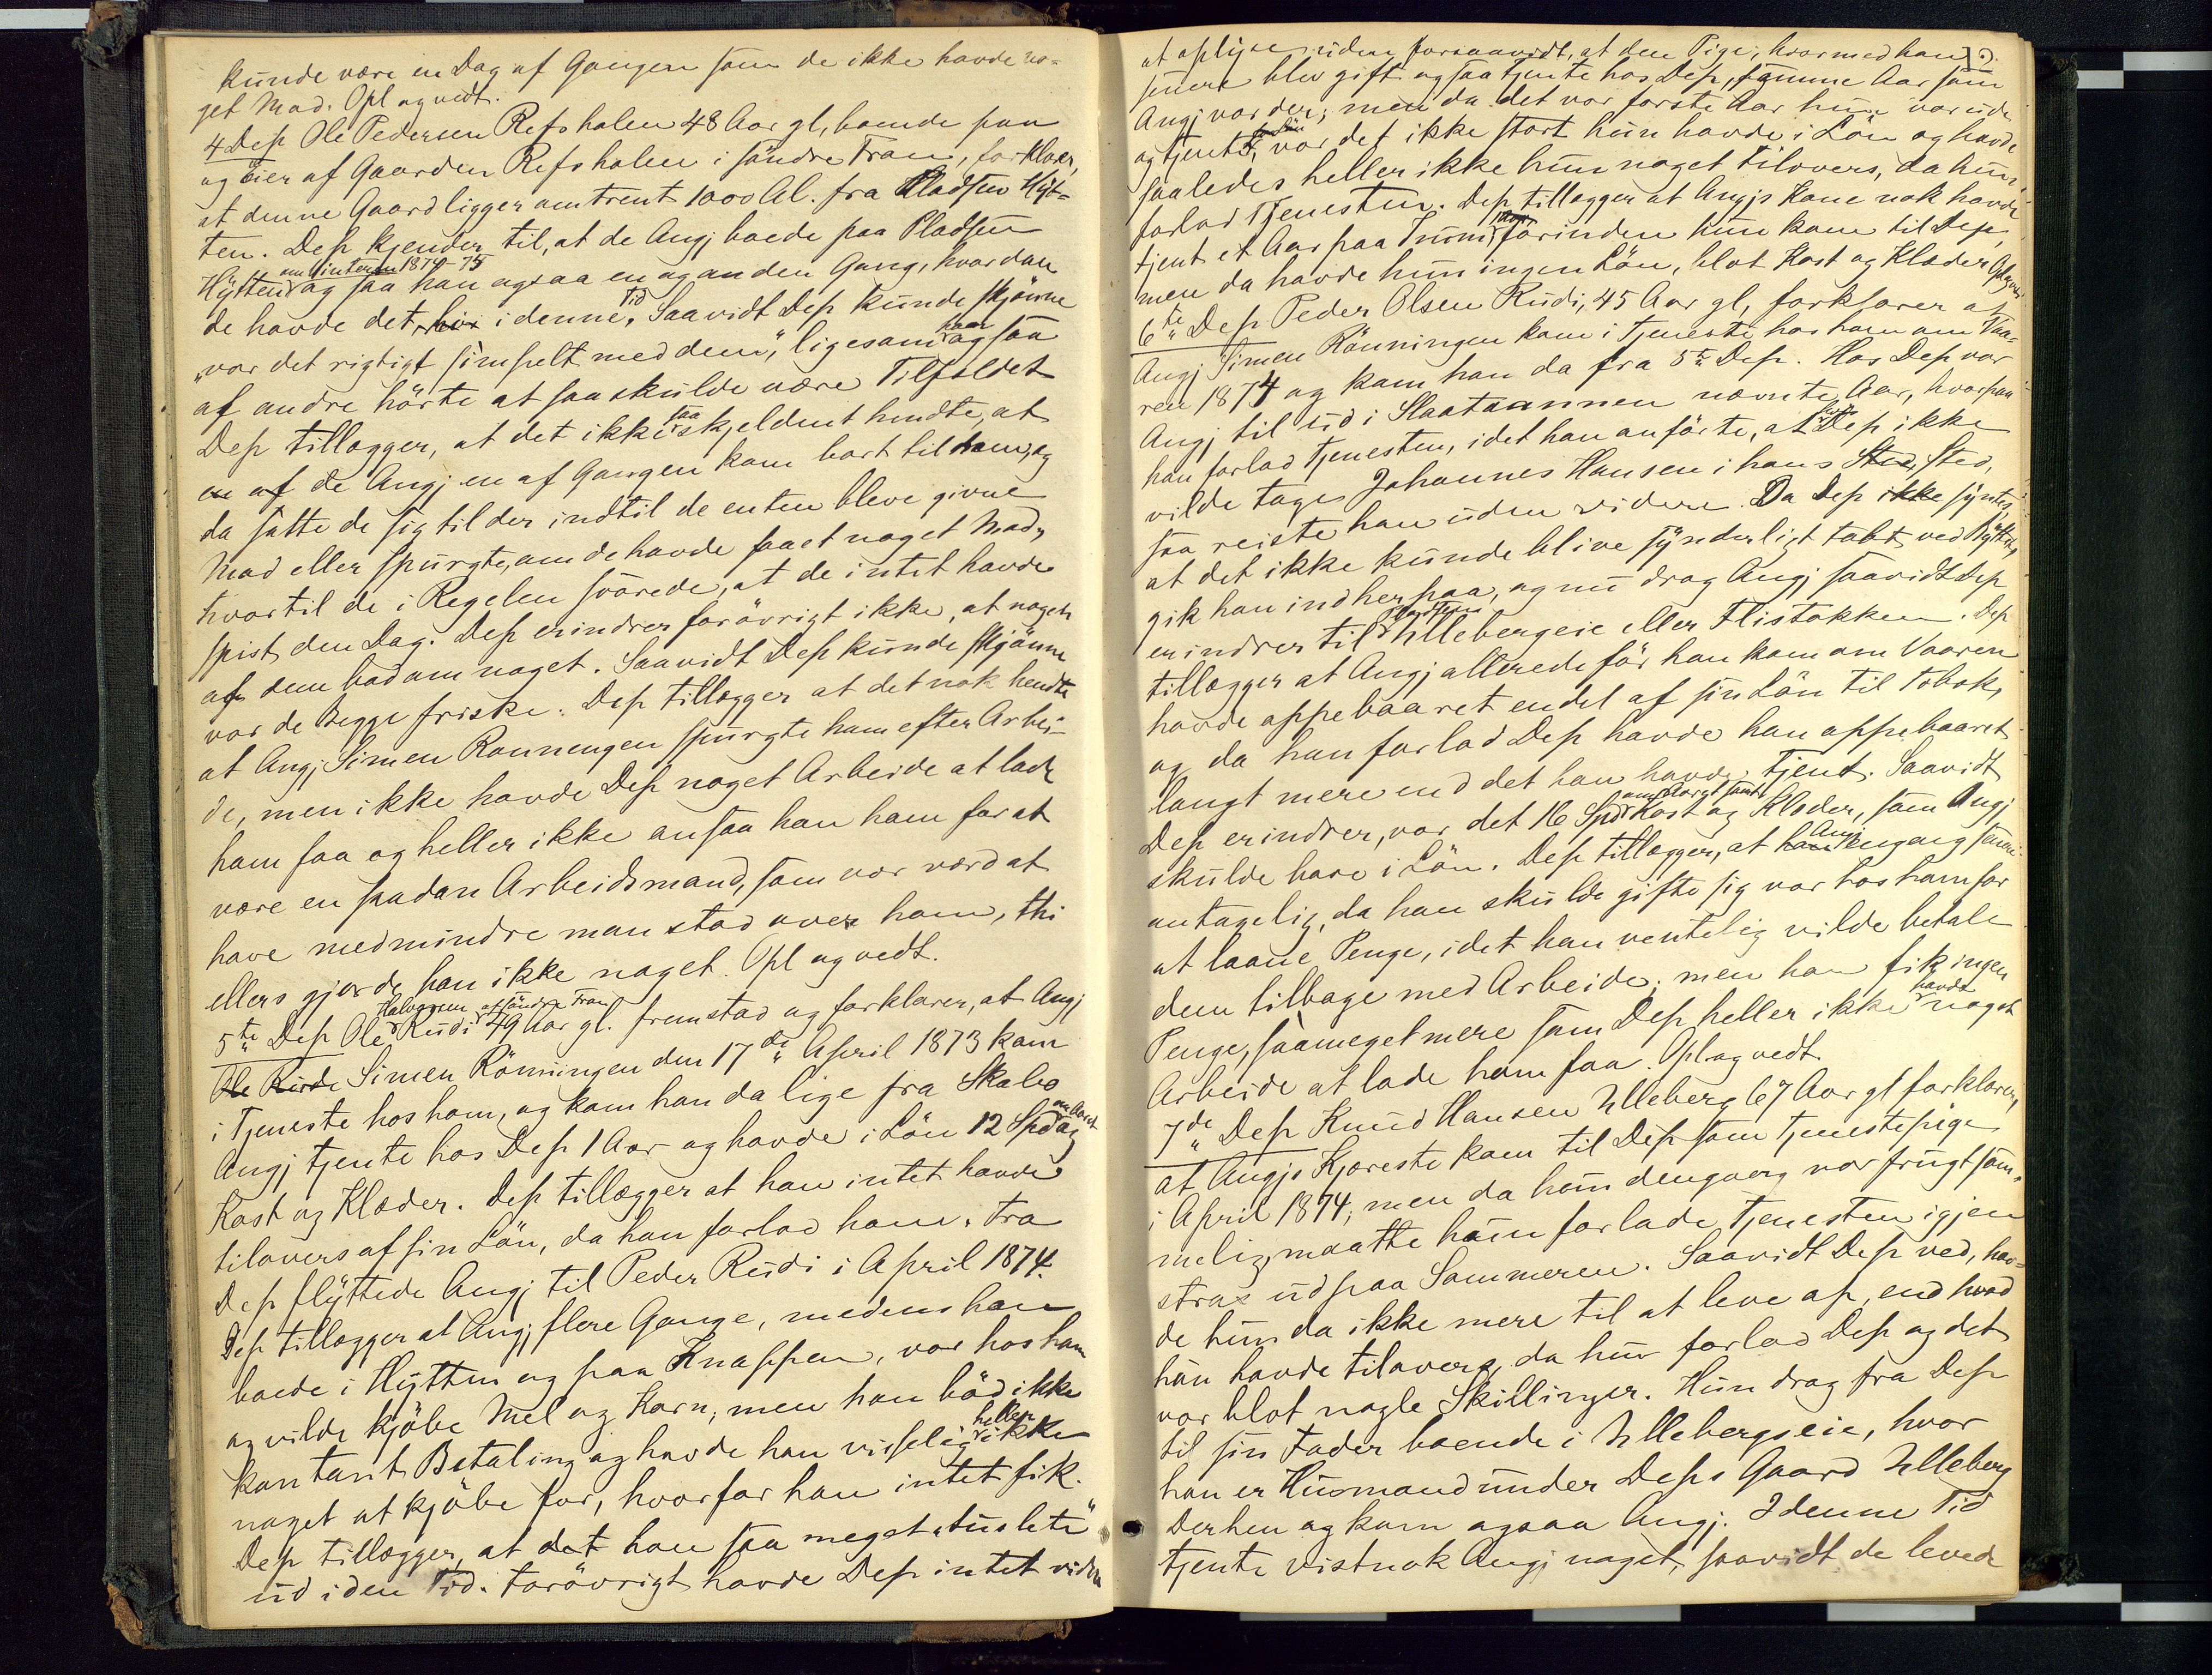 kunde være en Dag af Gangen som de ikke havde no-
get Mad. Opl og vedt.
4 Dep Ole Pedersen Refshalen 48 Aar gl, boende paa
og eier af Gaarden Refshalen i söndre Fron, forklarer,
at denne Gaard ligger omtrent 1000 Al. fra Pladsen Hyt-
ten. Dep kjender til, at de Angj boede paa Pladsen
Hytten om Vinteren 1874-75 og saa han ogsaa en og anden Gang, hvordan
de havde det, i denne Tid. Saavidt Dep kunde skjönne
"var det rigtigt simpelt med dem", ligesom han ogsaa
af andre hörte at saa skulde være Tilfældet
Dep tillægger, at det ikke saa skjeldent hendte, at
en af de Angj en af Gangen kom bort til ham, og
da satte de sig til der indtil de enten bleve givne
Mad eller spurgte, om de havde faaet noget Mad,
hvortil de i Regelen svarede, at de intet havde
spist den Dag. Dep erindrer forövrigt ikke, at nogen
af dem bad om noget. Saavidt Dep kunde skjönne
var de Begge friske. Dep tillægger at det nok hendte
at Angj. Simen Ronningen spurgte ham efter Arbei-
de, men ikke havde Dep noget Arbeide at lade
ham faa og heller ikke ansaa han ham for at
være en saadan Arbeidsmand, som var værd at
have medmindre man stod over ham, thi
ellers gjorde han ikke noget. Opl og vedt.
5te Dep Ole Halvorsen Rudi af söndre Fron 49 Aar gl. fremstod og forklarer, at Angj
Ole Rude Simen Rönningen den 17de April 1873 kom
i Tjeneste hos ham, og kom han da lige fra Skabo
Angj tjente hos Dep 1 Aar og havde i Lön 12 Spd om Aaret og
Kost og Klæder. Dep tillægger at han intet havde
tilovers af sin Lön, da han forlod ham. Fra
Dep flyttede Angj til Peder Rudi i April 1874.
Dep tillægger at Angj flere Gange, medens han
boede i Hytten og paa Knappen, var hos ham
og vilde kjöbe Mel og Korn, men han böd ikke
kontant Betaling og havde han visselig heller ikke
noget at kjöbe for, hvorfor han intet fik.
Dep tillægger, at det han saa meget "tuslete"
ud i den Tid. Forövrigt havde Dep intet videre
at oplyse uden forsaavidt, at den Pige, hvormed han
senere blev gift ogsaa tjente hos Dep, samme Aar som
Angj var der; men da det var förste Aar hun var ude
og tjente for Lön, var det ikke stort hun havde i Lön og havde
saaledes heller ikke hun noget tilovers, da hun
forlod Tjenesten. Dep tillægger at Angjs Kone nok havde
tjent et Aar paa forinden hun kom til Dep,
men da havde hun ingen Lön, blot Kost og Klæder. Opl og vedt
6te Dep Peder Olsen Rudi, 45 Aar gl, forklarer at
Angj Simen Rönningen kom i Tjeneste hos ham om Vaa-
ren 1874 og kom han da fra 5te Dep. Hos Dep var
Angj til ud i Slaataannen nævnte Aar, hvorpaa
han forlod Tjenesten, idet han anförte, at Dep ikke
vilde tage Johannes Hansen i hans Sted, Sted,
saa reiste han uden videre. Da Dep ikke syntes,
at det ikke kunde blive synderligt tabt ved Bytting
gik han ind herpaa, og nu drog Angj saavidt Dep
erindrer til Pladsen Ulleberg eie eller Flistokken. Dep
tillægger at Angj allerede för han kom om Vaaren
havde oppebaaret endel af sin Lön til Tobak,
og da han forlod Dep havde han oppebaaret
langt mere end det han havde tjent. Saavidt
Dep erindrer, var det 16 Spd om Aaret samt Kost og Klæder, som Angj
skulde have i Lön. Dep tillægger, at han Angj engang som
antagelig, da han skulde gifte sig var hos ham for
at laane Penge, idet han ventelig vilde betale
dem tilbage med Arbeide; men han fik ingen
Penge, saameget mere som Dep heller ikke havde noget
Arbeide at lade ham faa. Opl og vedt.
7de Dep Knud Hansen Ulleberg 67 Aar gl forklarer,
at Angjs Kjæreste kom til Dep som Tjenestepige
i April 1874; men da hun dengang var frugtsom-
melig, maatte hun forlade Tjenesten igjen
strax ud paa Sommeren. Saavidt Dep ved, hav-
de hun da ikke mere til at leve af, end hvad
hun havde tilovers, da hun forlod Dep og det
var blot nogle Skillinger. Hun drog fra Dep
til sin Fader boende i Ullebergseie, hvor
han er Husmand under Deps Gaard Ulleberg
Derhen og kom ogsaa Angj. I denne Tid
tjente vistnok Angj noget, saavidt de levede